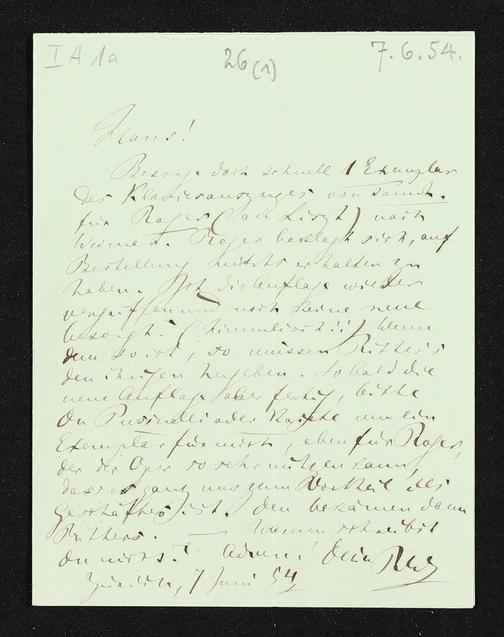 I A 1a 26(1) 7.6.54.
Hans!
Besorge doch schnell 1 Exemplar
des Klavierauszuges von Tannh.
für Roger (an Liszt) nach
Weimar. Roger beklagt sich, auf
Bestellung nichts erhalten zu
haben. Ist die Auflage wieder
vergriffen und noch keine neue
besorgt? (Himmlisch!!) Wenn
dem so ist, so müssen Ritters
den ihrigen hergeben. Sobald die
neue Auflage aber fertig, bitte
Du Pusinelli oder um ein
Exemplar für mich, eben für Roger,
der der Oper so sehr nützen kann,
dass es ganz nur zum Vortheil des
Geschäftes ist. Den bekämen dann
Ritters. — Warum schreibst
Du nichts? Adieu! Dein
Zürich, 7 Juni 54